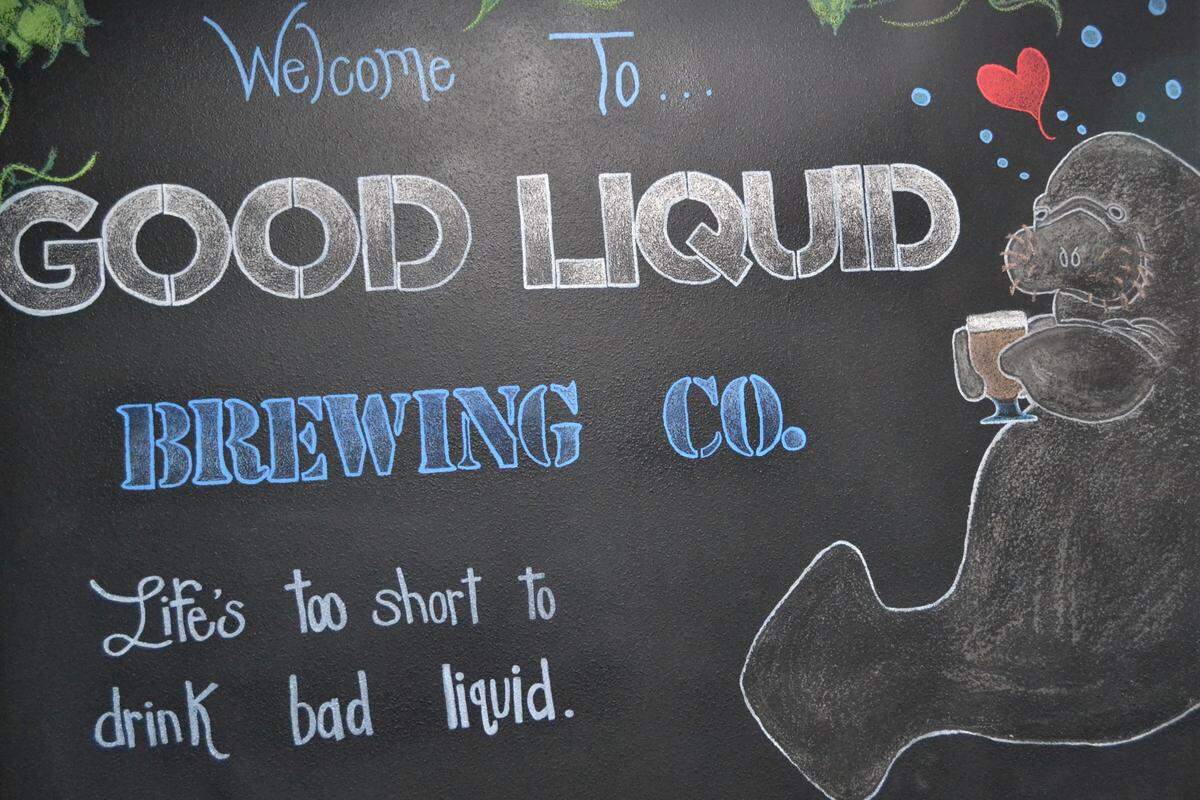 Welcome To....
GOOD LIQUID
BREWING CO.
Life's too short to
drink bad liquid.